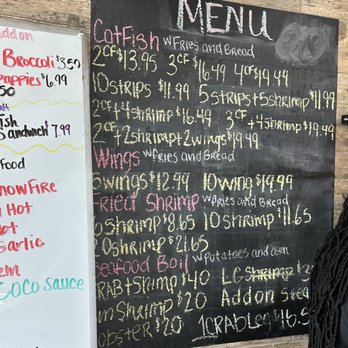 addon
Broccoli $3.50
appies $6.99
50
ish
Sandwich $7.99
Food
nowFire
Hot
Hot
Garlic
COCO Sauce
MENU
Catfish w Fries and Bread
2CF $13.95 3CF $16.49 4CF $19.49
10strips $11.99 5strips+5shrimp $11.99
2CF+4shrimp $16.49 3CF+4Shrimp $19.49
2CF+2shrimp+2wings $19.99
Wings w Fries and Bread
6wings $12.99 10wing $19.99
Fried Shrimp w Fries and Bread
6shrimp $8.65 10shrimp $11.65
20shrimp $21.65
Seafood Boil w Potatoes and corn
RAB+Shrimp $40 LG Shrimp $
on Shrimp $20 Addon Stea
obster $20 1CRABLeg $16.5